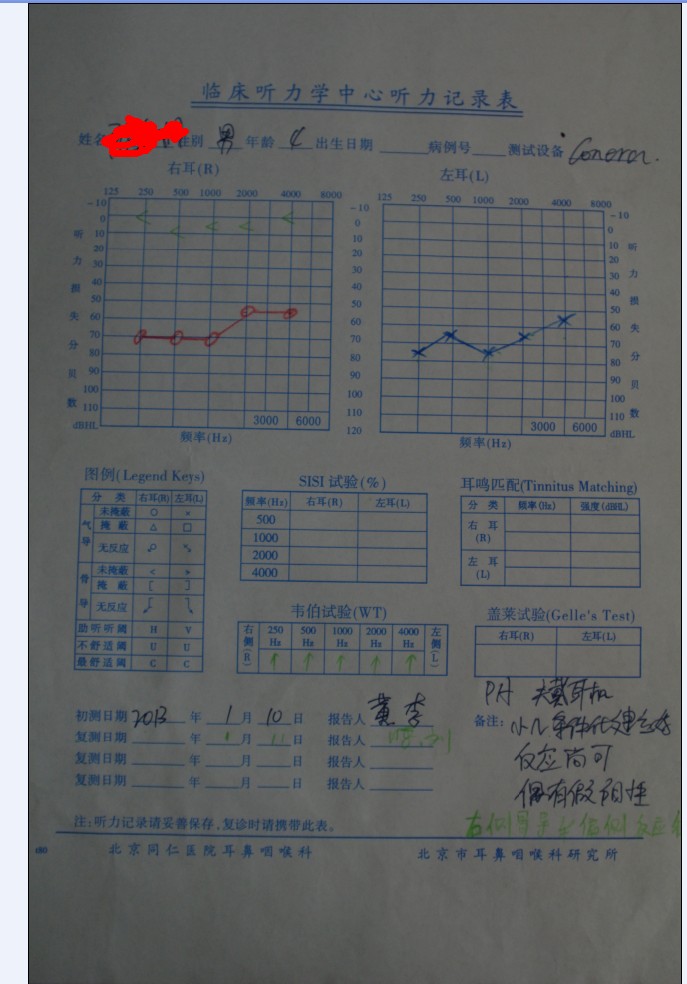 临床听力学中心听力记录表
姓名 性别 男 年龄 4 出生日期 病例号 测试设备
右耳(R) 左耳(L)
125 250 500 1000 2000 4000 8000
-10
0
10
20
30
40
50
60
70
80
90
100
110
dBHL
听力损失分贝数
3000 6000
频率(Hz)
-10
0
10
20
30
40
50
60
70
80
90
100
110
120
125 250 500 1000 2000 4000 8000
-10
0
10
20
30
40
50
60
70
80
90
100
110
dBHL
听力损失分贝数
3000 6000
频率(Hz)
图例(Legend Keys)
分 类 右耳(R) 左耳(L)
气导
未掩蔽 ○ ×
掩 蔽 △ □
无反应
骨导
未掩蔽 < >
掩 蔽 [ ]
无反应
助听听阈 H V
不舒适阈 U U
最舒适阈 C C
SISI 试验(%)
频率(Hz) 右耳(R) 左耳(L)
500
1000
2000
4000
耳鸣匹配(Tinnitus Matching)
分 类 频率(Hz) 强度(dBHL)
右 耳
(R)
左 耳
(L)
韦伯试验(WT)
右侧(R) 250 Hz 500 Hz 1000 Hz 2000 Hz 4000 Hz 左侧(L)
↑ ↑ ↑ ↑ ↑
盖莱试验(Gelle's Test)
右耳(R) 左耳(L)
初测日期 2013 年 1 月 10 日 报告人 黄 李
复测日期 年 1 月 11 日 报告人
复测日期 年 月 日 报告人
复测日期 年 月 日 报告人
PA 夹戴耳机
备注: 小儿条件化建立好
反应尚可
偶有假阳性
注:听力记录请妥善保存,复诊时请携带此表。
北京同仁医院耳鼻咽喉科 北京市耳鼻咽喉科研究所